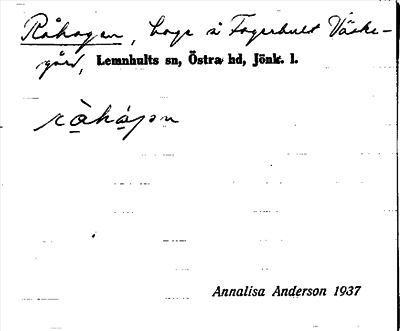 Råhagen, hage å Fagerhult Väste-
gård, Lemnhults sn, Östra hd, Jönk. l.
råhágən
Annalisa Anderson 1937